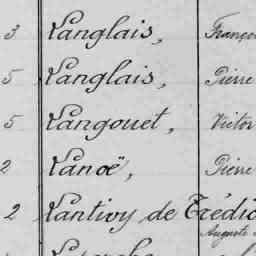 3 Langlais, Franço
5 Langlais, Pierre
5 Langouet, Victor
2 Lanoë, Pierre
2 Lantivy de Trédio
Auguste